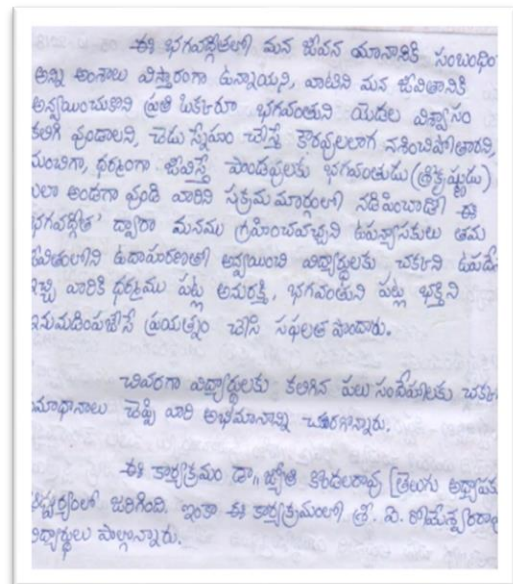 ఈ భగవద్గీతలో మన జీవన యానానికి సంబంధిం
అన్ని అంశాలు విస్తారంగా ఉన్నాయని, వాటిని మన జీవితానికి
అన్వయించుకొని ప్రతి ఒకరూ భగవంతుని యెడల విశ్వాసం
కలిగి వుండాలని, చెడు స్నేహం చేస్తే కౌరవులలాగ నశించిపోతారని,
మంచిగా, ధర్మంగా జీవిస్తే పాండవులకు భగవంతుడు (శ్రీకృష్ణుడు)
ఎలా అండగా వుండి వారిని సక్రమ మార్గంలో నడిపించాడో ఈ
భగవద్గీత' ద్వారా మనము గ్రహించవచ్చని ఉపన్యాసకులు తమ
జీవితంలోని ఉదాహరణతో అన్వయించి విద్యార్థులకు, చక్కని ఉపదే
ఇచ్చి వారికి ధర్మము పట్ల అనురక్తి, భగవంతుని పట్ల భక్తిని
ఇనుమడింపజేసే ప్రయత్నం చేసి సఫలత పొందారు.
చివరగా విద్యార్థులకు కలిగిన పలు సందేహాలకు చక్క
మాధానాలు చెప్పి వారి అభిమానాన్ని చూరగొన్నారు.
ఈ కార్యక్రమం డా,, జ్యోతి కొండలరావు [తెలుగు అధ్యాపకు
జరిగింది. ఇంకా ఈ కార్యక్రమంలో శ్రీ. వి.
విద్యార్థులు పాల్గొన్నారు.